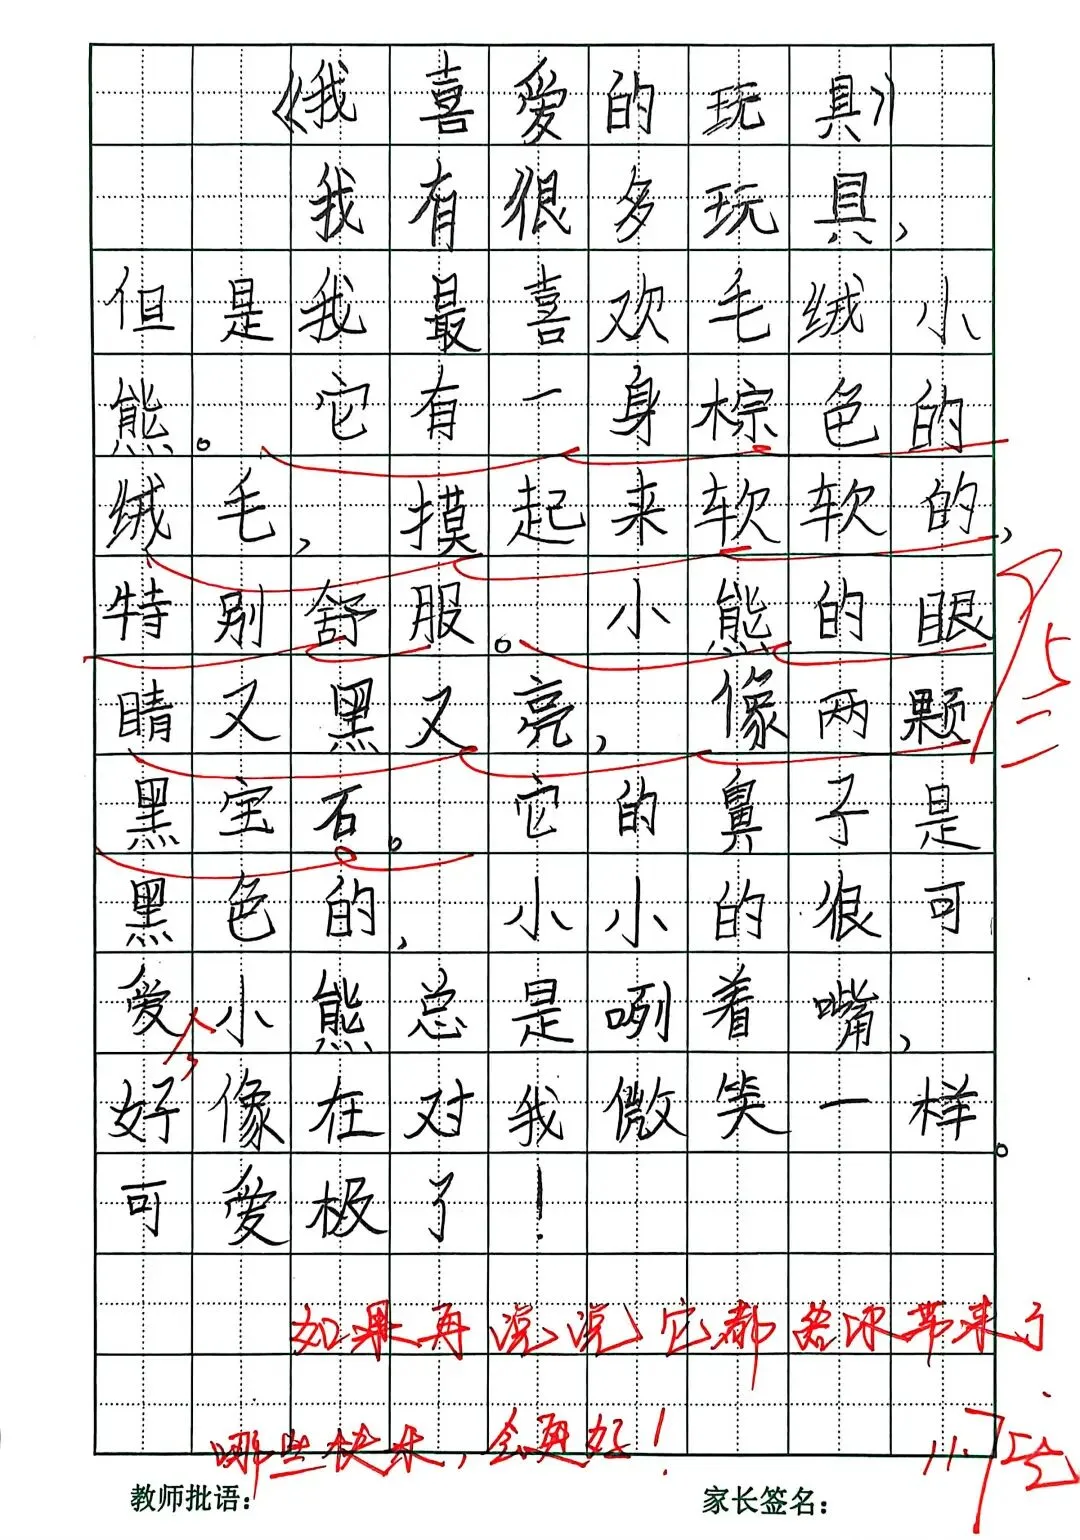 《我喜爱的玩具》
我有很多玩具，
但是我最喜欢毛绒小
熊。它有一身棕色的
绒毛，摸起来软软的，
特别舒服。小熊的眼
睛又黑又亮，像两颗
黑宝石。它的鼻子是
黑色的，小小的很可
爱小熊总是咧着嘴，
好像在对我微笑一样。
可爱极了！
如果再说说它都给你带来了
哪些快乐，会更好！
教师批语：
家长签名：